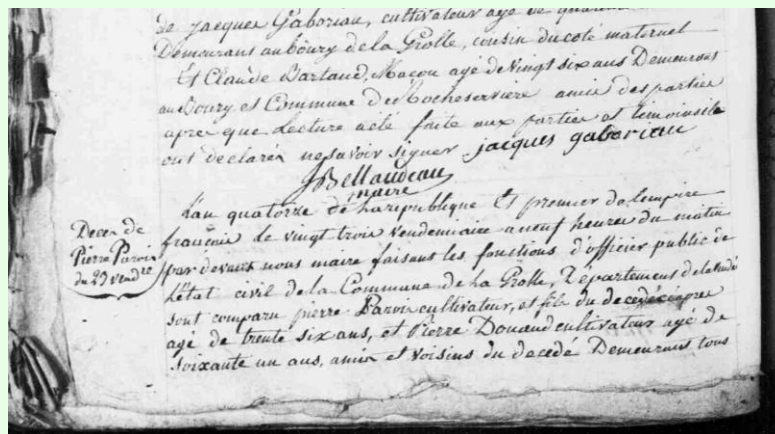 de jacques Gaboriau, cultivateur agé de
Demeurant au boury de la Grolle, cousin du coté maternel
Et Claude Bartaud, Macon agé de vingt six ans Demeurant
au Boury et Commune de Rocheserviere amis des partie
apres que Lecture a eté faite aux partie et temoins ils
ont déclarés ne savoir signer jacques gaboriau
JBellaudeau
maire
Lan quatorze de la republique Et premier de lempire
français le vingt trois vendemiaire a neuf heures du matin
Deces de
Pierre Parois
du 23 vendre
par devant nous maire faisant les fonctions d'officier public de
l'Etat civil de la Commune de la Grolle, Département de la
sont comparu pierre Parois cultivateur, et fils du decedé
agé de trente six ans, et Pierre Douaud cultivateur agé de
soixante un ans, amis et voisins du decedé Demeurant tous